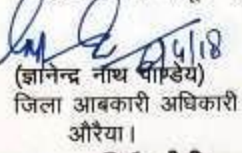 4/18
(ज्ञानेन्द्र नाथ पाण्डेय)
जिला आबकारी अधिकारी
औरैया।